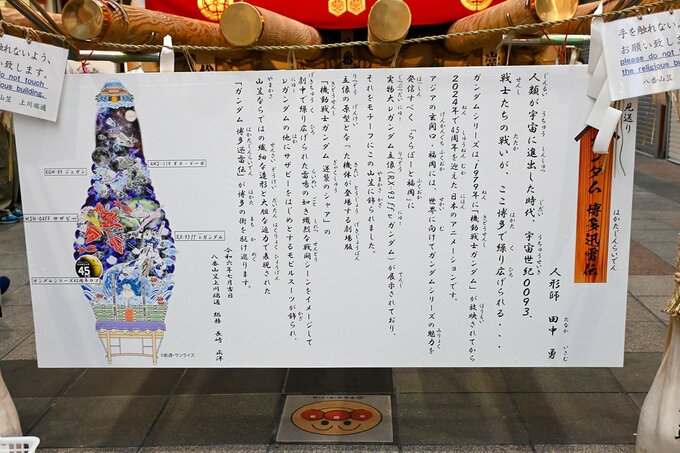 れないよう、
致します。
do not touch
religious building.
山笠 上川端通
手を触れないよ
お願い致します
please do not
the religious building.
八番山笠
見送り
ンダム 博多迅雷伝
はかたじんらいでん
人形師 田中 勇
たなか いさむ
人類が宇宙に進出した時代、宇宙世紀0093、
戦士たちの戦いが、ここ博多で繰り広げられる・・・
ガンダムシリーズは1979年に『機動戦士ガンダム』が放映されてから
2024年で45周年を迎えた日本のアニメーションです。
アジアの玄関口・福岡には、世界に向けてガンダムシリーズの魅力を
発信すべく「ららぽーと福岡」に
実物大νガンダム立像(RX-93ffνガンダム)が展示されており、
それをモチーフにこの山笠に飾られました。
立像の原型となった機体が登場する劇場版
『機動戦士ガンダム 逆襲のシャア』の
劇中で繰り広げられた雷鳴の如き激しい戦闘シーンをイメージして
νガンダムの他にサザビーをはじめとするモビルスーツが飾られ、
山笠ならではの繊細な造形と大胆な迫力で表現された
「ガンダム 博多迅雷伝」が博多の街を駆け巡ります。
令和六年七月吉日
八番山笠上川端通 総務 長崎 正洋
AMS-119 ギラ・ドーガ
RGM-89 ジェガン
MSN-04FF サザビー
RX-93ff νガンダム
ガンダムシリーズ45周年ロゴ
45
©創通・サンライズ